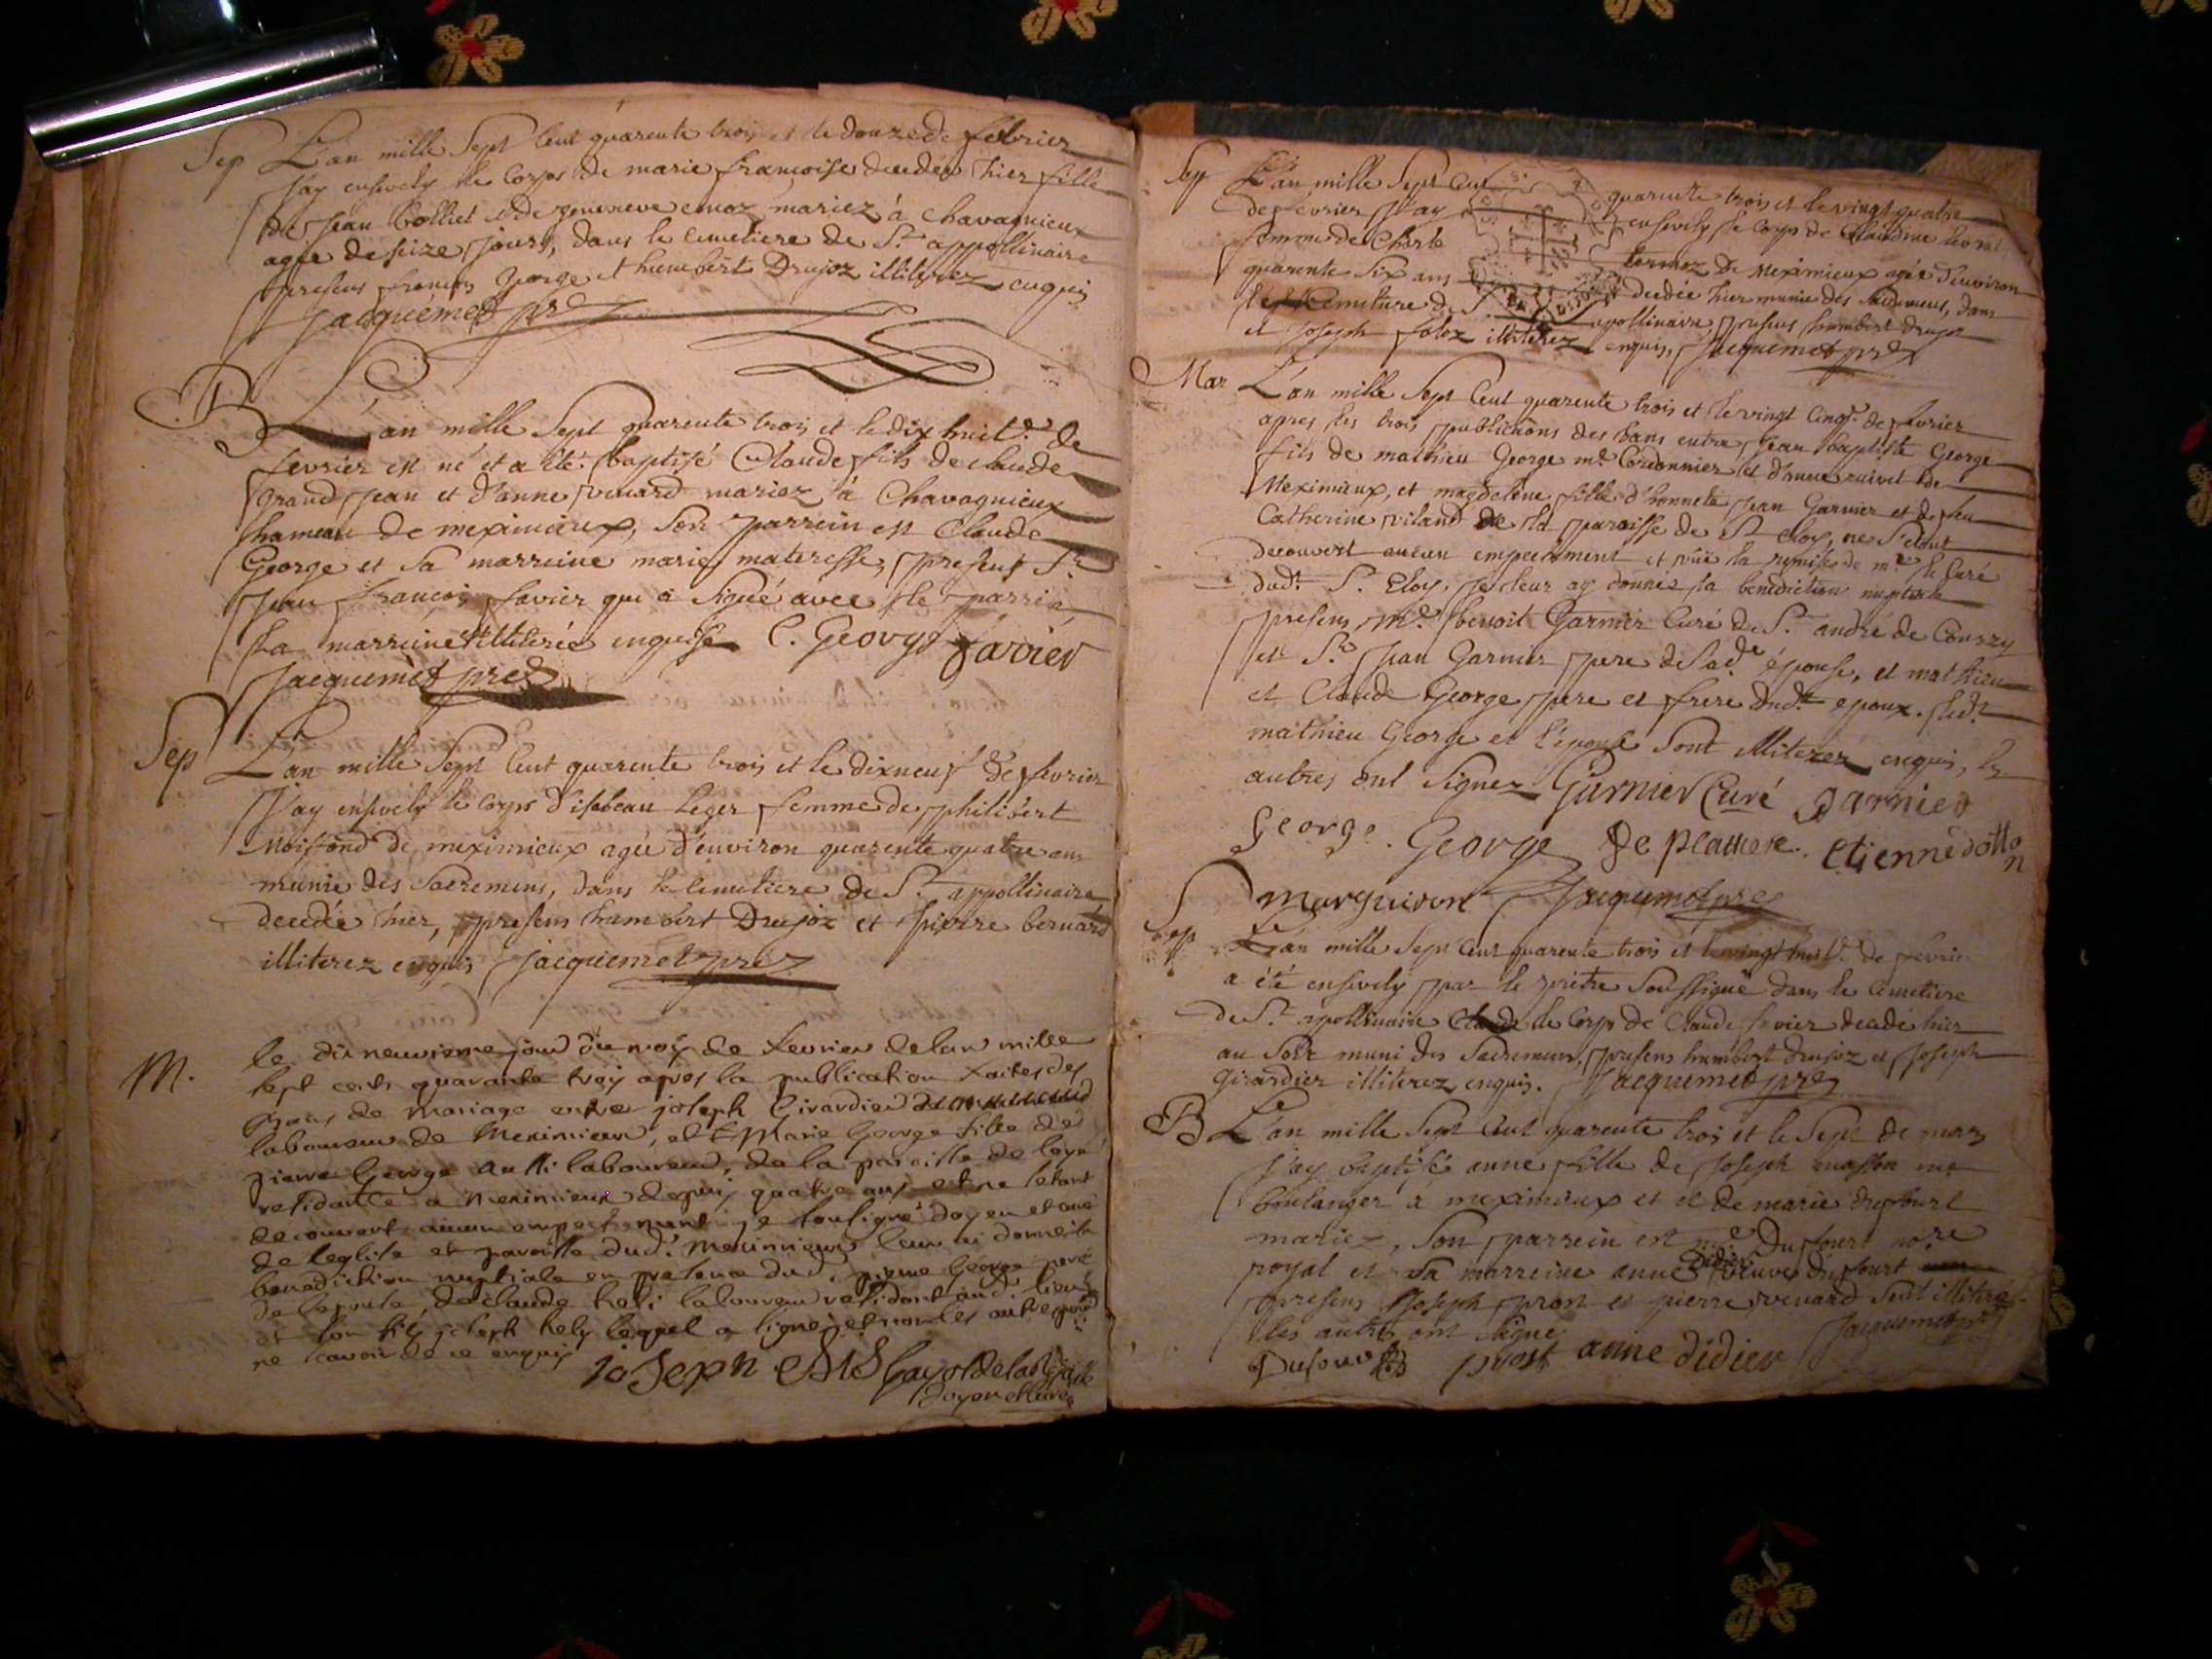 Sep L'an mille Sept Cent quarente trois et le douze de febvrier
j'ay ensevely le Corps de marie francoise decedée hier fille
de jean bolliet et de genevieve mariez à chavagnieux
agée de seize jours, dans le cimetiere de St. appollinaire
presens francois george et humbert Drujoz illiterez enquis
jacquemet pre
B L'an mille Sept quarente trois et le dix huit.e de
fevrier est né et a eté baptisé Claude fils de claude
grand jean et d'anne renard mariez à Chavagnieux
hameau de meximieux, son parrein est Claude
George et sa marreine marie materesse, present Sr.
jean françois favier qui a signé avec le parrein
la marreine illiterée enquise C. George favier
jacquemet pre
Sep L'an mille Sept Cent quarente trois et le dixneuf de fevrier
j'ay ensevely le Corps d'isabeau Leger femme de philibert
de meximieux agée d'environ quarente quatre ans
munie des Sacremens, dans le Cimetiere de St. appollinaire,
decedée hier, presens humbert Drujoz et pierre bernard
illiterez enquis jacquemet pre
M. le dix neuvieme jour du mois de fevrier de lan mille
sept cents quarante trois apres la publication faites des
bans de mariage entre joseph Girardier
laboureur de Meximieux, et Marie George fille de
pierre George aussi laboureur, de la paroisse de
residante a Meximieux depuis quatre ans et ne setant
decouvert aucun empechement je soussigné doyen et curé
de leglise et paroisse dud. Meximieux leur ai donné la
benediction nuptiale en presence dud. pierre George pere
de lepouse, de claude heli laboureur residant aud. lieu
et son fils joseph hely lequel a signé et non les autres pour
ne scavoir de ce enquis
joseph
doyen et curé
Sep L'an mille Sept Cent quarente trois et le vingt quatre
de fevrier j'ay ensevely le Corps de Claudine
femme de Charle termoz de Meximieux agée d'environ
quarente Six ans decedée hier munie des Sacremens, dans
le Cemitiere de St. apollinaire, presens humbert drujoz
et joseph folez illiterez enquis, jacquemet pre
Mar L'an mille Sept Cent quarente trois et le vingt cinq.e de fevrier
apres les trois publications des bans entre jean baptiste George
fils de mathieu George me. Cordonnier et d'anne ruivet de
Meximieux, et magdeleine fille d'honnete jean Garnier et de feu
Catherine viland de la paroisse de St eloy, ne s'etant
decouvert aucun empechement et vuë la remise de mre. le Curé
dud.t St. Eloy, je leur ay donné la benediction nuptiale
presens, Mre. benoit Garnier Curé de St. andré de Couzy
et Sr. jean Garnier pere de lad.e épouse, et mathieu
et Claude George pere et frere dud.t epoux. led.t
mathieu George et l'épouse sont illiterez enquis, les
autres ont signez Garnier Curé garnier
george. George De plattiere. etienne dotton
marguiron jacquemet pre
Sep L'an mille Sept Cent quarente trois et le vingt huit.e de fevrier
a été ensevely par le prêtre soussigné dans le Cimetiere
de St. apollinaire le Corps de Claude favier decedé hier
au Soir muni des Sacremens, presens humbert drujoz et joseph
girardier illiterez enquis. jacquemet pre
B L'an mille Sept Cent quarente trois et le Sept de mars
j'ay baptisé anne fille de joseph masson me
boulanger à meximieux et de marie dufourt
mariez, son parrein est me. Dufourt nore
royal et sa marreine anne Didier veuve dufourt
presens joseph prost et pierre renard seul illiteré
les autres ont signé jacquemet pre
Dufour prost anne didier